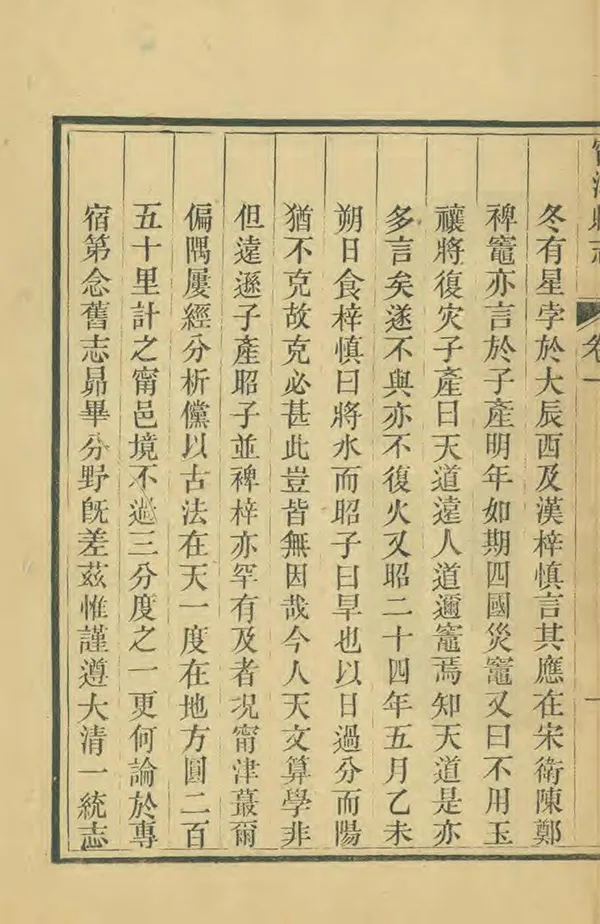 甯津縣志
卷一
冬有星孛於大辰西及漢梓慎言其應在宋衛陳鄭
裨竈亦言於子產明年如期四國災竈又曰不用玉
禳將復灾子產曰天道遠人道邇竈焉知天道是亦
多言矣遂不與亦不復火又昭二十四年五月乙未
朔日食梓慎曰將水而昭子曰旱也以日過分而陽
猶不克故克必甚此豈皆無因哉今人天文算學非
但遠遜子產昭子並裨梓亦罕有及者况甯津蕞爾
偏隅屢經分析儻以古法在天一度在地方圓二百
五十里計之甯邑境不過三分度之一更何論於專
宿第念舊志昴畢分野旣差茲惟謹遵大清一統志